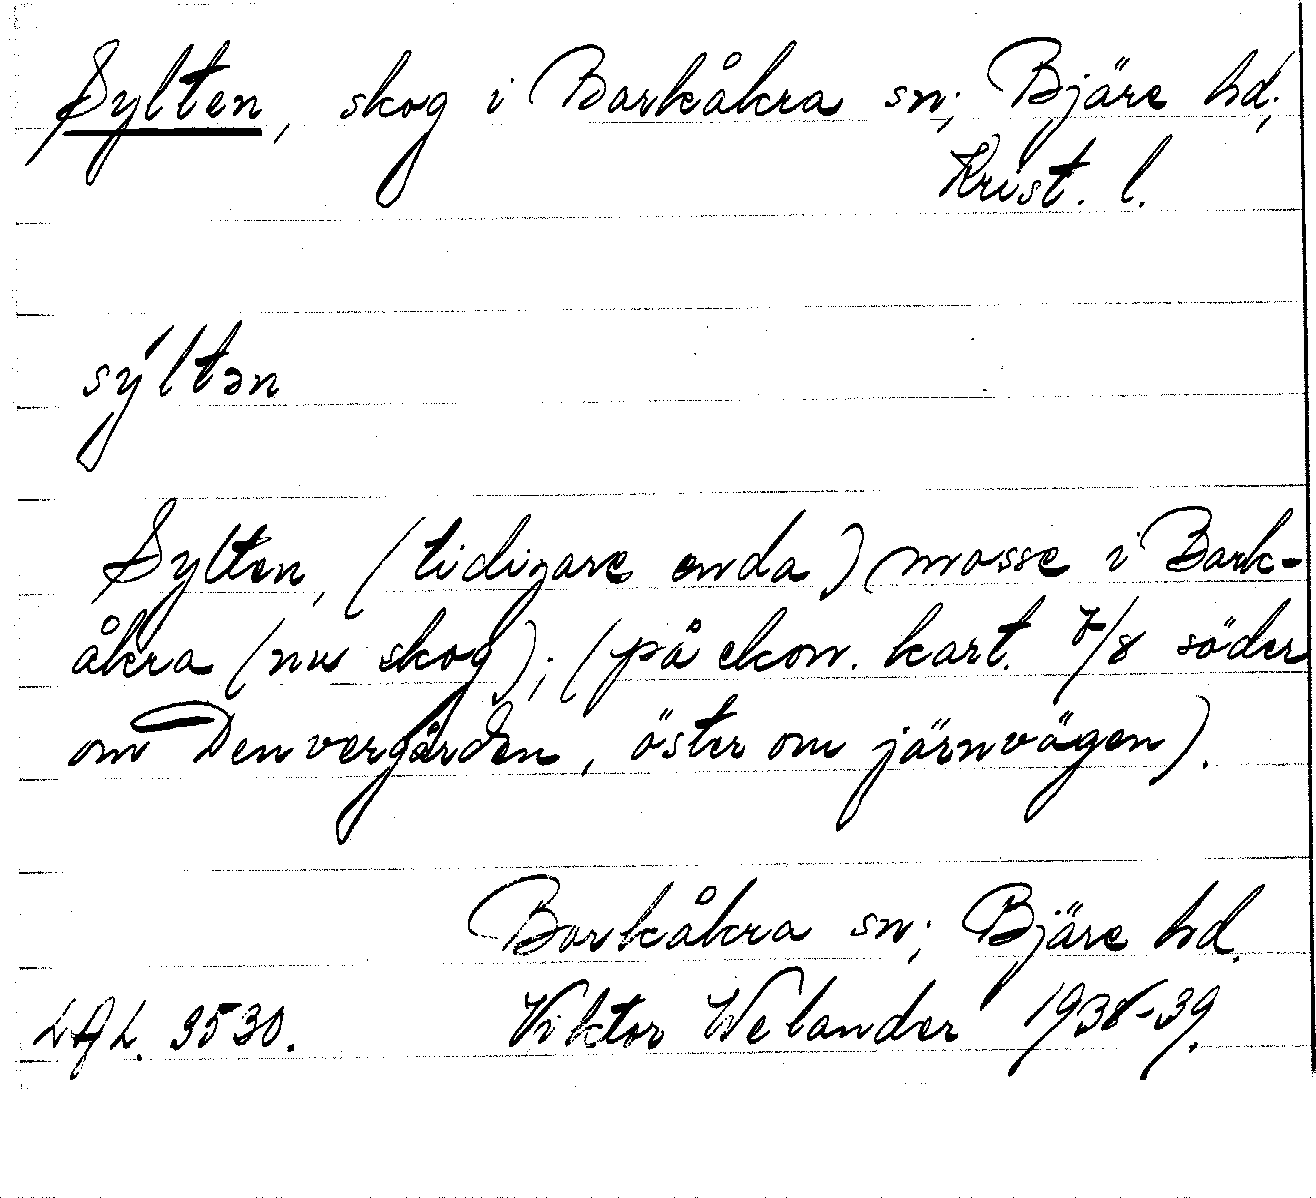 Sylten, skog i Barkåkra sn; Bjäre hd;
Krist. l.
sýltən
Sylten, (tidigare enda) mosse i Bark-
åkra (nu skog); (på ekon. kart. 7/8 söder
om Denvergården, öster om järnvägen).
Barkåkra sn; Bjäre hd.
LAL. 3530. Viktor Welander 1938-39.